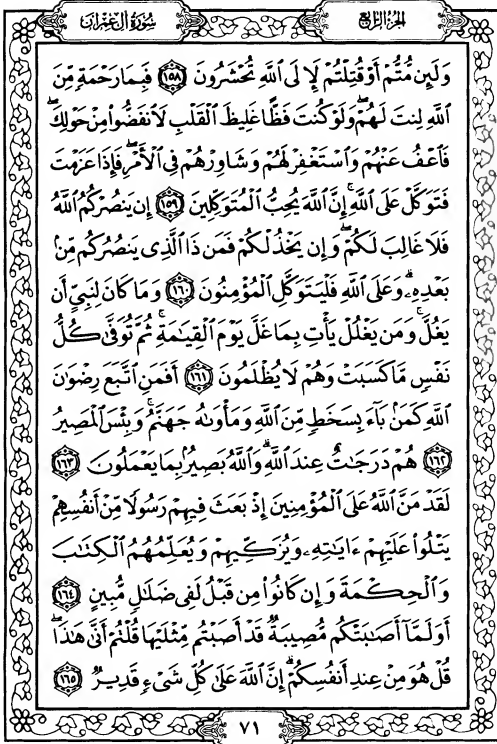 سُورَةُ آلِ عِمْرَان
الجُزْءُ الرَّابِعُ
وَلَئِن مُّتُّمْ أَوْ قُتِلْتُمْ لَإِلَى ٱللَّهِ تُحْشَرُونَ ١٥٨ فَبِمَا رَحْمَةٍ مِّنَ
ٱللَّهِ لِنتَ لَهُمْ ۖ وَلَوْ كُنتَ فَظًّا غَلِيظَ ٱلْقَلْبِ لَٱنفَضُّوا۟ مِنْ حَوْلِكَ ۖ
فَٱعْفُ عَنْهُمْ وَٱسْتَغْفِرْ لَهُمْ وَشَاوِرْهُمْ فِى ٱلْأَمْرِ ۖ فَإِذَا عَزَمْتَ
فَتَوَكَّلْ عَلَى ٱللَّهِ ۚ إِنَّ ٱللَّهَ يُحِبُّ ٱلْمُتَوَكِّلِينَ ١٥٩ إِن يَنصُرْكُمُ ٱللَّهُ
فَلَا غَالِبَ لَكُمْ ۖ وَإِن يَخْذُلْكُمْ فَمَن ذَا ٱلَّذِى يَنصُرُكُم مِّنۢ
بَعْدِهِۦ ۗ وَعَلَى ٱللَّهِ فَلْيَتَوَكَّلِ ٱلْمُؤْمِنُونَ ١٦٠ وَمَا كَانَ لِنَبِىٍّ أَن
يَغُلَّ ۚ وَمَن يَغْلُلْ يَأْتِ بِمَا غَلَّ يَوْمَ ٱلْقِيَٰمَةِ ۚ ثُمَّ تُوَفَّىٰ كُلُّ
نَفْسٍ مَّا كَسَبَتْ وَهُمْ لَا يُظْلَمُونَ ١٦١ أَفَمَنِ ٱتَّبَعَ رِضْوَٰنَ
ٱللَّهِ كَمَنۢ بَآءَ بِسَخَطٍ مِّنَ ٱللَّهِ وَمَأْوَىٰهُ جَهَنَّمُ ۚ وَبِئْسَ ٱلْمَصِيرُ
١٦٢ هُمْ دَرَجَٰتٌ عِندَ ٱللَّهِ ۗ وَٱللَّهُ بَصِيرٌۢ بِمَا يَعْمَلُونَ ١٦٣
لَقَدْ مَنَّ ٱللَّهُ عَلَى ٱلْمُؤْمِنِينَ إِذْ بَعَثَ فِيهِمْ رَسُولًا مِّنْ أَنفُسِهِمْ
يَتْلُوا۟ عَلَيْهِمْ ءَايَٰتِهِۦ وَيُزَكِّيهِمْ وَيُعَلِّمُهُمُ ٱلْكِتَٰبَ
وَٱلْحِكْمَةَ وَإِن كَانُوا۟ مِن قَبْلُ لَفِى ضَلَٰلٍ مُّبِينٍ ١٦٤
أَوَلَمَّآ أَصَٰبَتْكُم مُّصِيبَةٌ قَدْ أَصَبْتُم مِّثْلَيْهَا قُلْتُمْ أَنَّىٰ هَٰذَا ۖ
قُلْ هُوَ مِنْ عِندِ أَنفُسِكُمْ ۗ إِنَّ ٱللَّهَ عَلَىٰ كُلِّ شَىْءٍ قَدِيرٌ ١٦٥
٧١